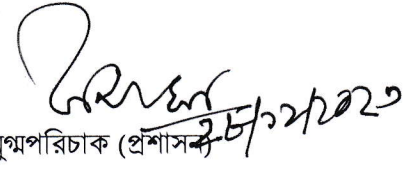 ২৮/১২/২০২৩
যুগ্মপরিচাক (প্রশাসন)